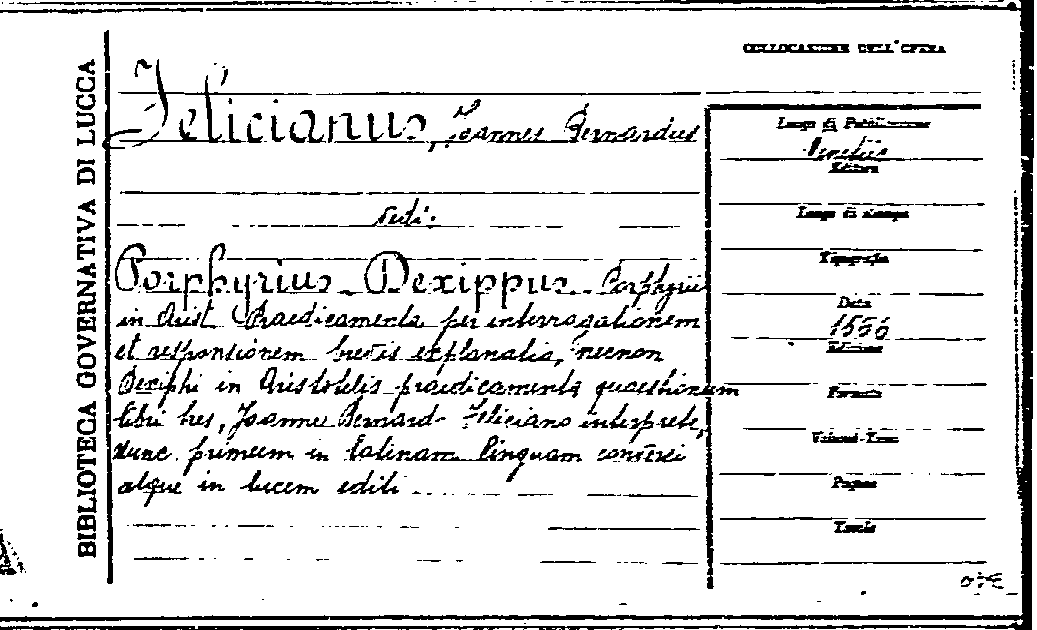 BIBLIOTECA GOVERNATIVA DI LUCCA
COLLOCAZIONE DELL'OPERA
Felicianus, Joannes Bernardus
Vedi:
Porphyrius - Dexippus - Porphyrii
in Arist. Praedicamenta per interrogationem
et responsionem brevis explanatio, necnon
Dexiphi in Aristotelis praedicamenta quaestionum
libri tres, Joanne Bernard- Feliciano interprete,
nunc primum in latinam linguam conversi
atque in lucem editi
Luogo di Pubblicazione
Venetiis
Editore
Luogo di stampa
Tipografia
Data
1556
Edizione
Formato
Volumi-Tomi
Pagine
Tavole